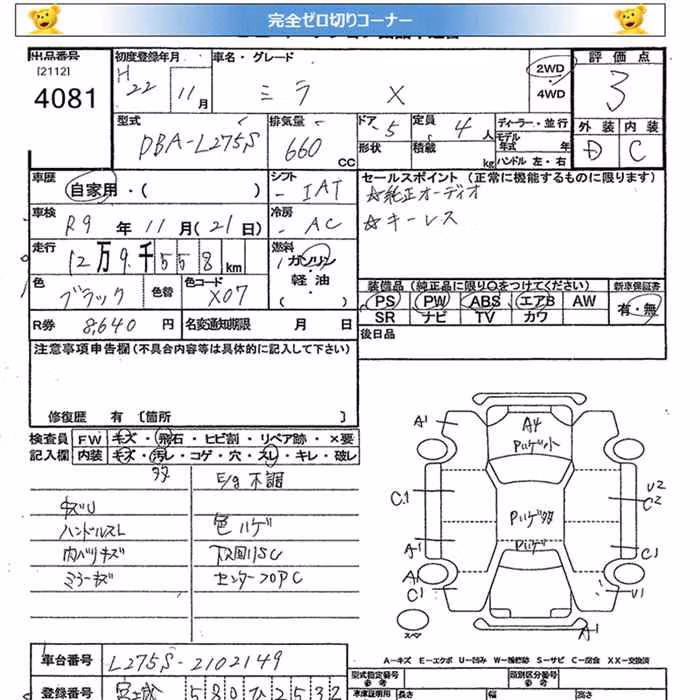 完全ゼロ切りコーナー
出品番号 初度登録年月 車名・グレード 評価点
[2112] H 22 11月 ミラ X 2WD 3
4081 4WD
型式 排気量 ドア 定員 ディーラー・並行 外装 内装
DBA-L275S 660 CC 5 4人 モデル年式 年 D C
形状 積載 kg ハンドル 左・右
車歴 自家用・( ) シフト - IAT セールスポイント(正常に機能するものに限ります)
☆純正オーディオ
車検 R9年11月(21日) 冷房 - AC ☆キーレス
走行 12万9千558km 燃料 ガソリン
軽油
( )
色 ブラック 色替 色コード X07 装備品(純正品に限り○をつけてください) 新車保証書
PS PW ABS エアB AW 有・無
R券 8,640円 名変通知期限 月 日 SR ナビ TV カワ
後日品
注意事項申告欄(不具合内容等は具体的に記入して下さい)
修復歴 有 [箇所 ]
検査員 FW キズ・飛石・ヒビ割・リペア跡・×要
記入欄 内装 キズ・汚レ・コゲ・穴・スレ・キレ・破レ
多 E/g不調
キズU
ハンドルスレ 色ハゲ
内バリキズ 下回りSC
ミラーキズ センターフロアC
A1 A4
Pハゲ小
C1 U2
C2
Pハゲ多
A1 Pハゲ C1
A1
C1 U1
スペア A1
A-キズ E-エクボ U-凹み W-補修跡 S-サビ C-腐食 XX-交換済
車台番号 L275S-2102149
型式指定番号 参考 類別区分番号 参考
登録番号 宮城 580 ひ 2532 車庫証明用 長さ 幅 高さ